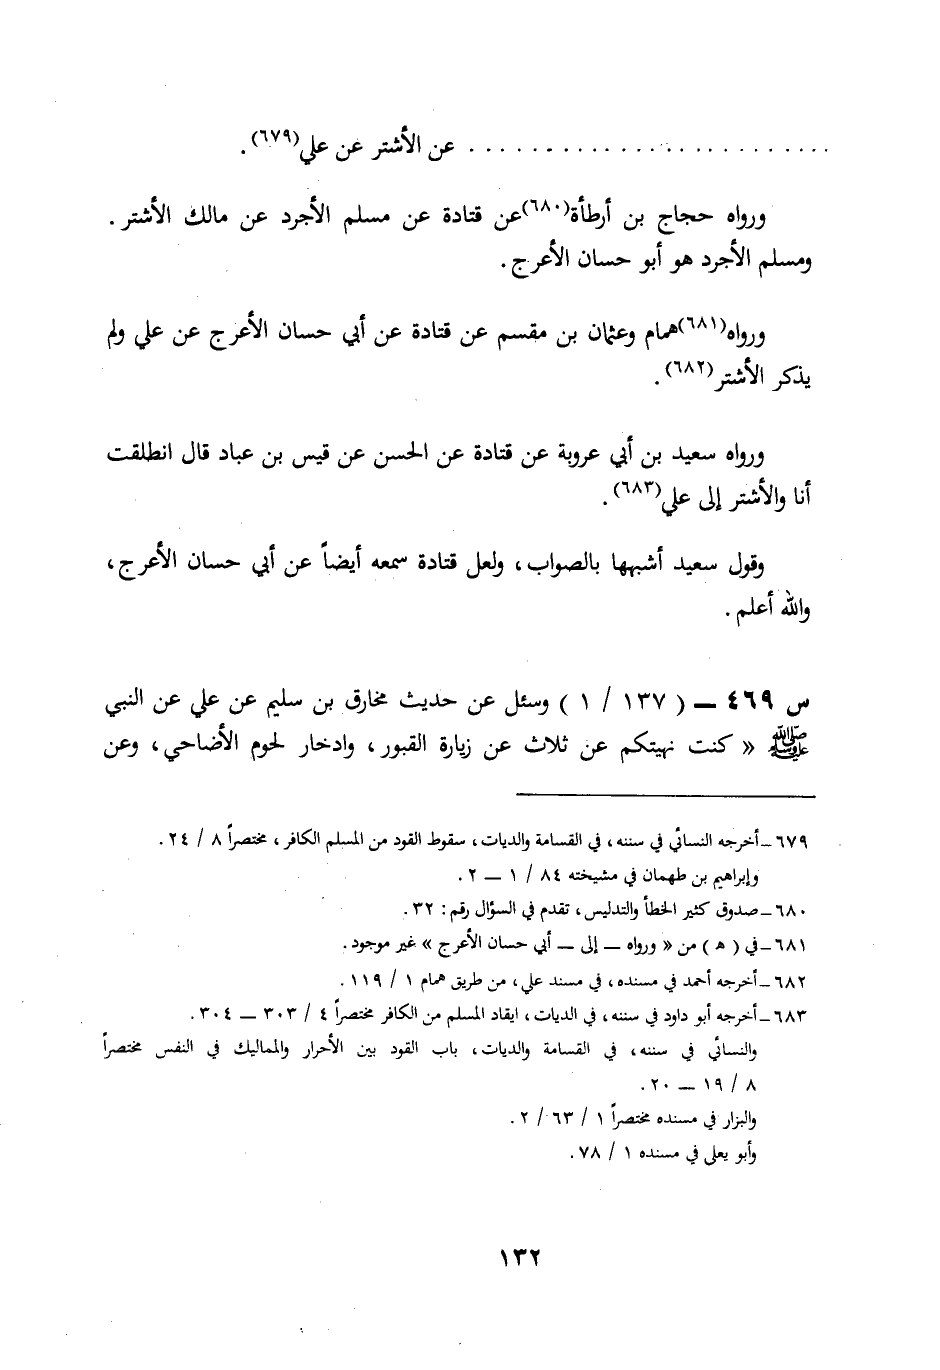 . . . . . . . . . . . . . . . . . . . . . . . . . عن الأشتر عن علي(٦٧٩) .
ورواه حجاج بن أرطأة(٦٨٠)عن قتادة عن مسلم الأجرد عن مالك الأشتر .
ومسلم الأجرد هو أبو حسان الأعرج .
ورواه(٦٨١)همام وعثمان بن مقسم عن قتادة عن أبي حسان الأعرج عن علي ولم
يذكر الأشتر(٦٨٢) .
ورواه سعيد بن أبي عروبة عن قتادة عن الحسن عن قيس بن عباد قال انطلقت
أنا والأشتر إلى علي(٦٨٣) .
وقول سعيد أشبهها بالصواب ، ولعل قتادة سمعه أيضاً عن أبي حسان الأعرج ،
والله أعلم .
س ٤٦٩ ــ ( ١٣٧ / ١ ) وسئل عن حديث مخارق بن سليم عن علي عن النبي
ﷺ « كنت نهيتكم عن ثلاث عن زيارة القبور ، وادخار لحوم الأضاحي ، وعن
٦٧٩ــ أخرجه النسائي في سننه ، في القسامة والديات ، سقوط القود من المسلم الكافر ، مختصراً ٨ / ٢٤ .
وإبراهيم بن طهمان في مشيخته ٨٤ / ١ ــ ٢ .
٦٨٠ــ صدوق كثير الخطأ والتدليس ، تقدم في السؤال رقم : ٣٢ .
٦٨١ــ في ( هـ ) من « ورواه ــ إلى ــ أبي حسان الأعرج » غير موجود .
٦٨٢ــ أخرجه أحمد في مسنده ، في مسند علي ، من طريق همام ١ / ١١٩ .
٦٨٣ــ أخرجه أبو داود في سننه ، في الديات ، ايقاد المسلم من الكافر مختصراً ٤ / ٣٠٣ ــ ٣٠٤ .
والنسائي في سننه ، في القسامة والديات ، باب القود بين الأحرار والمماليك في النفس مختصراً
٨ / ١٩ ــ ٢٠ .
والبزار في مسنده مختصراً ١ / ٦٣ / ٢ .
وأبو يعلى في مسنده ١ / ٧٨ .
١٣٢